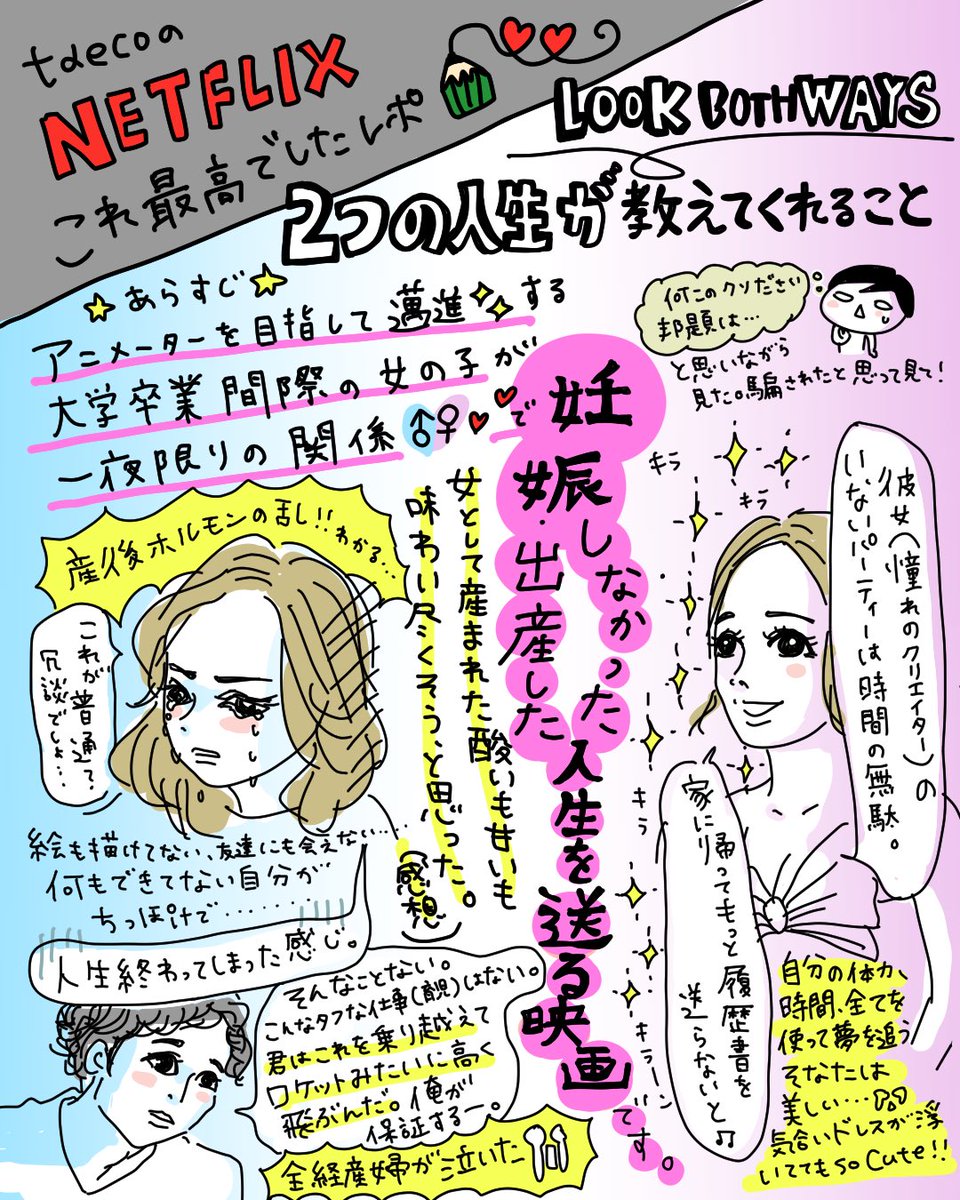 taecoの
NETFLIX
これ最高でしたレポ
LOOK BOTH WAYS
2つの人生が教えてくれること
あらすじ
アニメーターを目指して邁進する
大学卒業間際の女の子が
一夜限りの関係♂♀で
妊娠しなかった
・出産した
人生を送る映画です。
何このクソださい
邦題は…
と思いながら
見た。騙されたと思って見て!
女として産まれた酸いも甘いも
味わい尽くそう、と思った。
(感想)
産後ホルモンの乱し!!わかる…
これが普通て?
冗談でしょ…
絵も描けてない、友達にも会えない…
何もできてない自分が
ちっぽけで………
人生終わってしまった感じ。
そんなことない。
こんなタフな仕事(育児)はない。
君はこれを乗り越えて
ロケットみたいに高く
飛ぶんだ。俺が
保証するー。
全経産婦が泣いた
キラ
キラ
彼女(憧れのクリエイター)の
いないパーティーは時間の無駄。
家に帰ってもっと履歴書を
送らないと♫
キラ
キラ
キラーン
自分の体力、
時間、全てを
使って夢を追う
そなたは
美しい…
気合いドレスが浮
いててもso cute!!